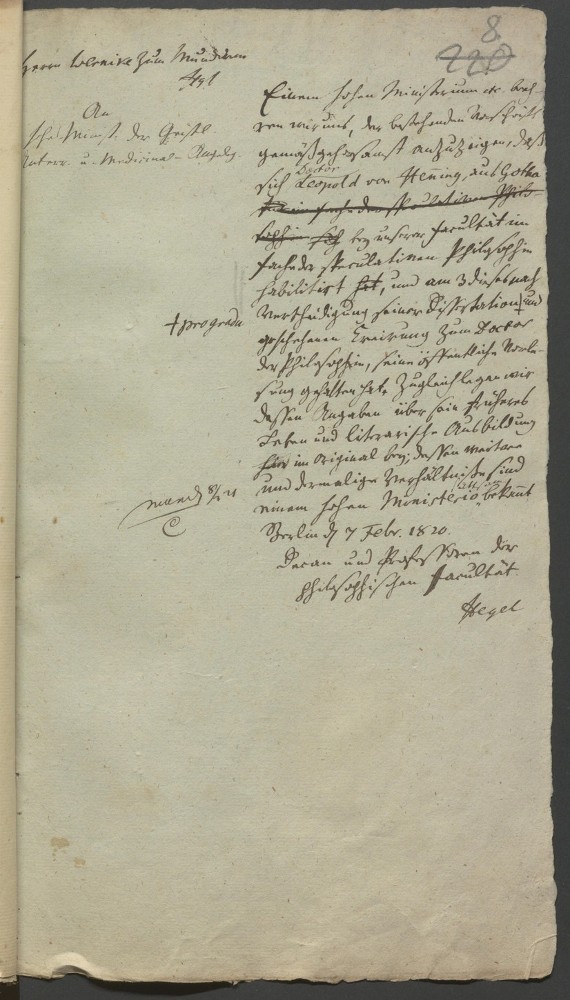 8
220
Herrn Wernike zum Mundiren
Hgl
An
Minist. der Geistl.
Unterr. u. Medicinal-Angelg.
Einem hohen Ministerium etc. beeh-
ren wir uns, der bestehenden Vorschrift
gemäß gehorsamst anzuzeigen, daß
sich Doctor Leopold von Hening, aus Gotha
im Fache der speculativen Philo-
sophie sich bey unserer Facultät im
Fache der speculativen Philosophie
habilitirt hat, und am 3 dieses nach
Vertheidigung seiner Dissertation + und
+ pro gradu
geschehenen Creirung zum Doctor
der Philosophie, seine öffentliche Vorle-
sung gehalten hat. Zugleich legen wir
dessen Angaben über sein früheres
Leben und literarische Ausbildung
hier im Original bey; dessen weitere
und dermalige Verhältnisse sind
einem hohen Ministerio bekannt
Berlin d. 7 Febr. 1820.
Decan und Professoren der
philosophischen Facultät.
Hegel